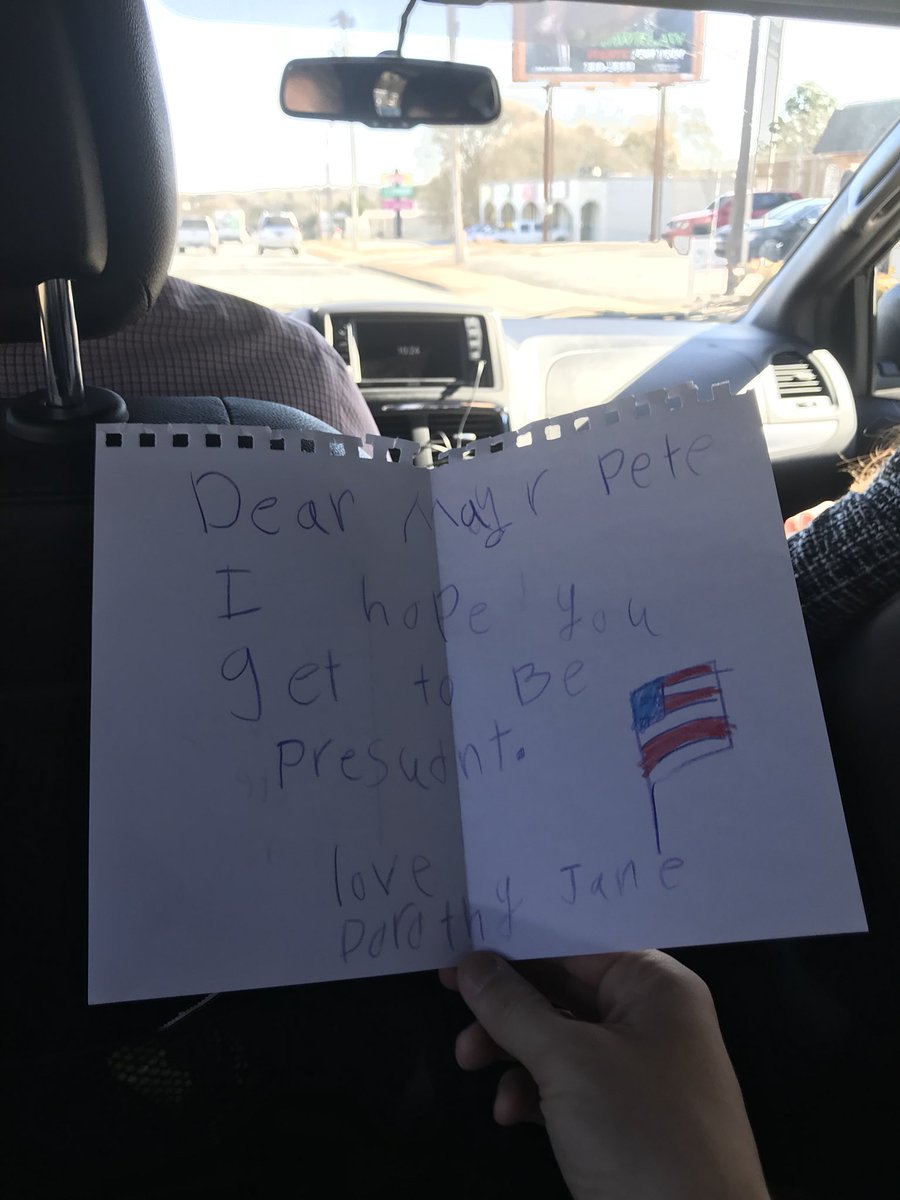 10:24
Dear Mayr Pete
I hope you
get to Be
Presudnt.
love
Dorothy Jane